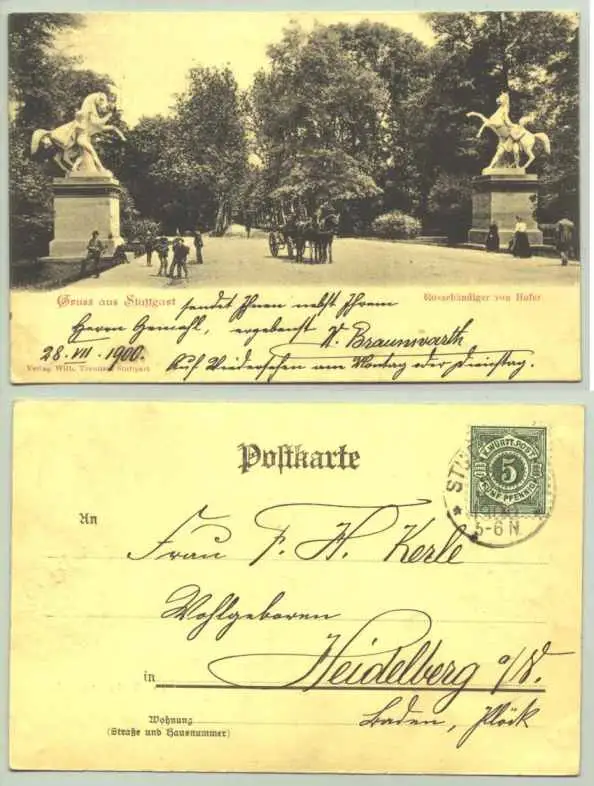 Gruss aus Stuttgart
Rossebändiger von Hofer
sendet Ihnen nebst Ihrem
Herrn Gemahl, ergebenst V. Braunwarth
28.VII.1900.
Auf Wiedersehen am Montag oder Dienstag.
Verlag Wilh. Stuttgart
Postkarte
K. WÜRTT. POST
5
FÜNF PFENNIG
5-6 N
An
Frau F. H. Kerle
Wohlgeboren
in Heidelberg a/N.
Baden, Plöck
Wohnung
(Straße und Hausnummer)